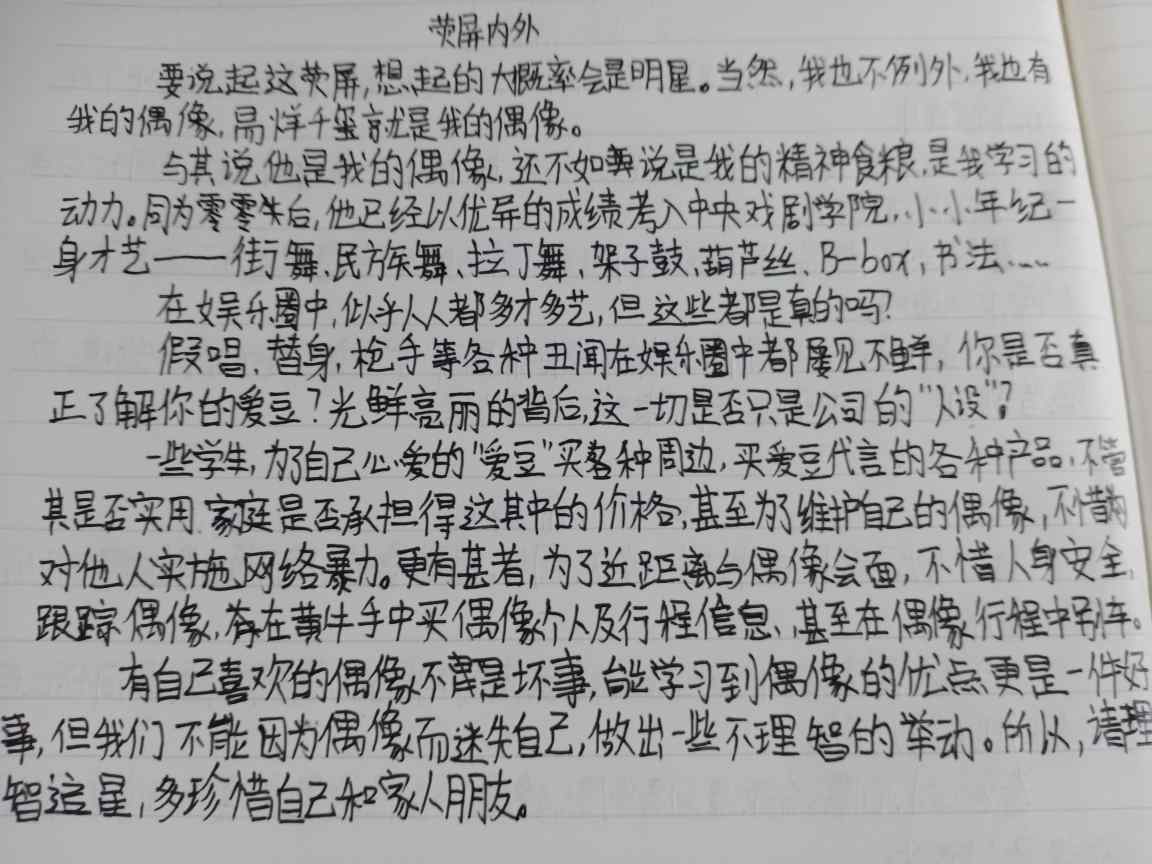 荧屏内外
要说起这荧屏,想起的大概率会是明星。当然,我也不例外,我也有
我的偶像,易烊千玺就是我的偶像。
与其说他是我的偶像,还不如说是我的精神食粮,是我学习的
动力。同为零零后,他已经以优异的成绩考入中央戏剧学院,小小年纪一
身才艺——街舞、民族舞、拉丁舞、架子鼓、葫芦丝、B-box,书法……
在娱乐圈中,似乎人人都多才多艺,但这些都是真的吗?
假唱、替身,枪手等各种丑闻在娱乐圈中都屡见不鲜,你是否真
正了解你的爱豆?光鲜亮丽的背后,这一切是否只是公司的“人设”?
一些学生,为了自己心爱的“爱豆”买各种周边,买爱豆代言的各种产品,不管
其是否实用,家庭是否承担得这其中的价格,甚至为了维护自己的偶像,不惜
对他人实施网络暴力。更有甚者,为了近距离与偶像会面,不惜人身安全,
跟踪偶像,在黄牛手中买偶像个人及行程信息,甚至在偶像行程中别车。
有自己喜欢的偶像不是坏事,能学习到偶像的优点更是一件好
事,但我们不能因为偶像而迷失自己,做出一些不理智的举动。所以,请理
智追星,多珍惜自己和家人朋友。